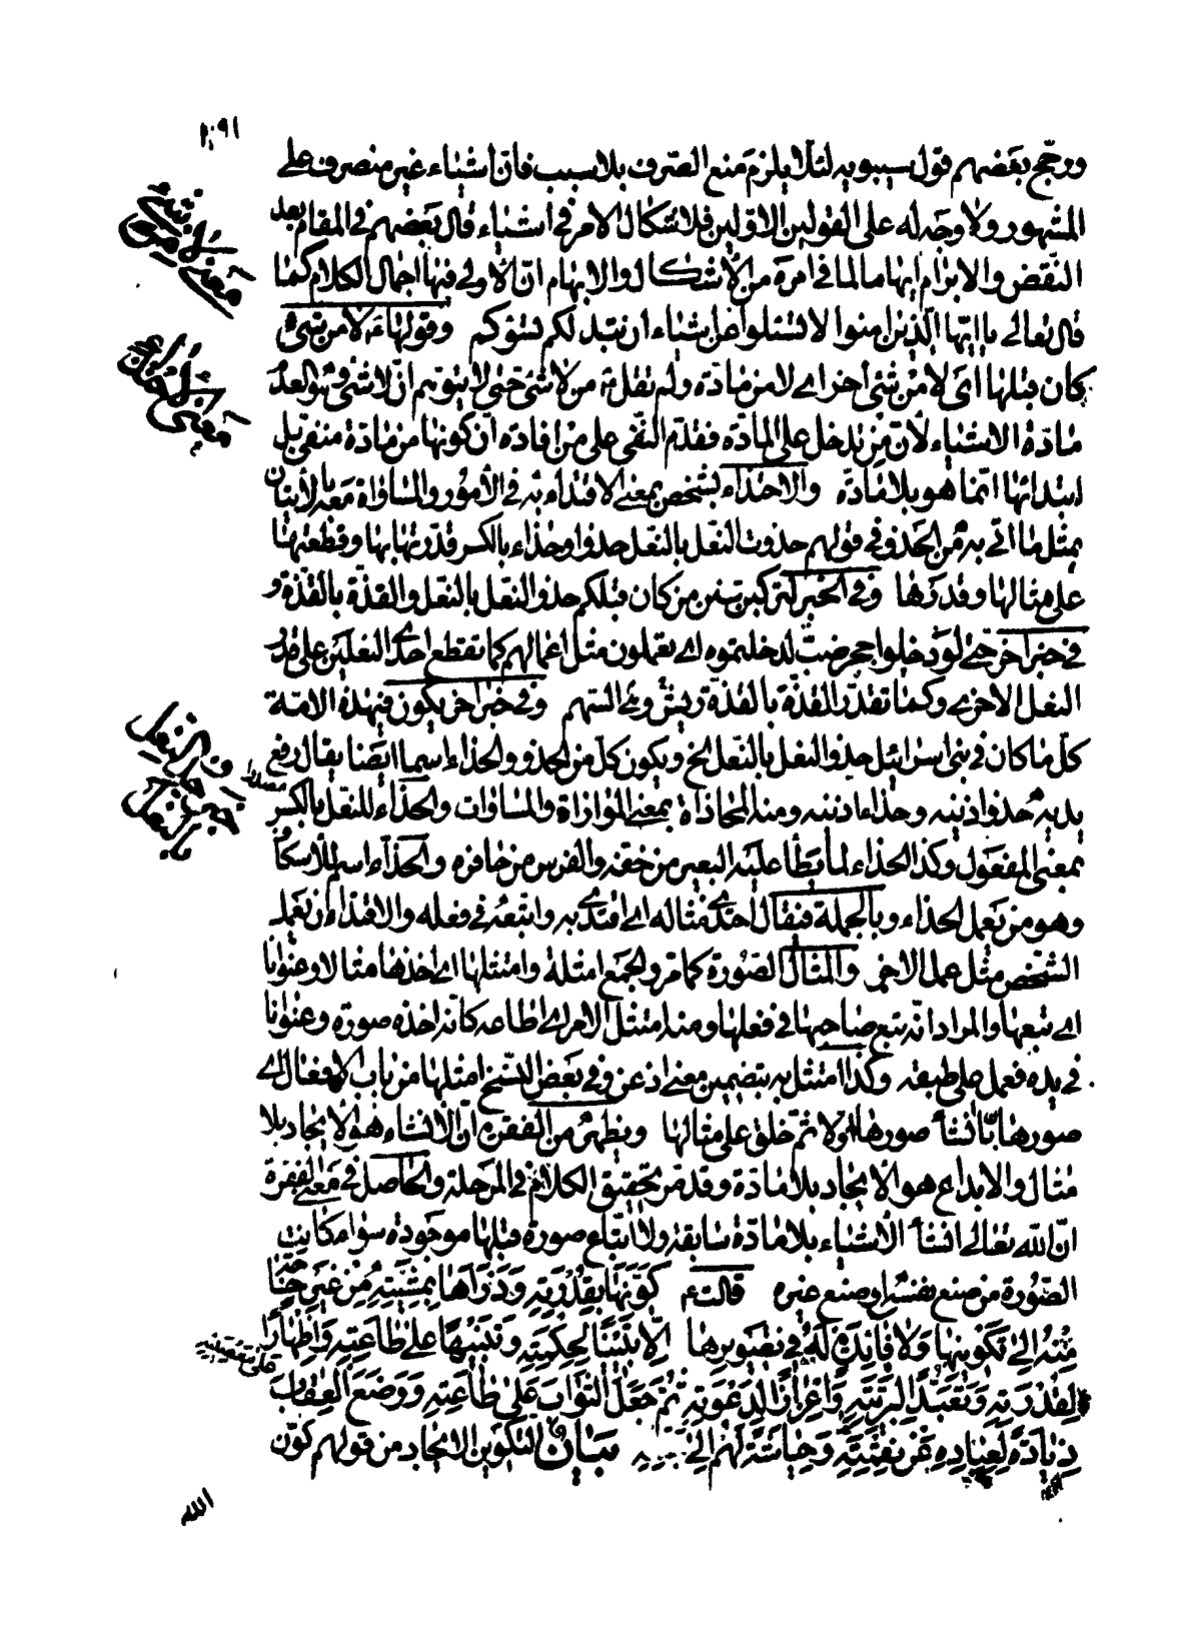 ورجّح بعضهم قول سيبويه لئلا يلزم منع الصرف بلا سبب فانّ اشياء غير منصرف على
المشهور ولا وجه له على القولين الاوّلين فلاشكال الامر في اشياء قال بعضهم في المقام بعد
النقض والابرام ابهاما لما في امره من الاشكال والابهام انّ الاولى فيها اجمال الكلام كما
قال تعالى يا ايّها الّذين امنوا لا تسئلوا عن اشياء ان تبد لكم تسؤكم وقولها ع لا من شئ
كان قبلها اى لا من شئ اخر اى لا من مادّة ولم تقل من لا شئ حتى لا يتوهم انّ لا شئ
مادّة الاشياء لأنّ من تدخل على المادّة فقدّم النفى على من افادة انّ كونها من مادّة منفى بل
ابتدائها انّما هو بلا مادّة والاحتذاء بشخص بمعنى الاقتداء به في الأمور والمساواة معه بالأتيان
بمثل ما اتى به من الحذو في قولهم حذوت النعل بالنعل حذوا وحذاء بالكسر قدّرتها بها وقطعتها
على مثالها وقدرها وفي الخبر لتركبنّ سنن من كان قبلكم حذو النعل بالنعل والقذّة بالقذّة و
في خبر اخر حتى لو دخلوا جحر ضبّ لدخلتموه اى تعملون مثل اعمالهم كما تقطع احدى النعلين على قدر
النعل الاخرى وكما تقدّر القذّة بالقذّة ريش السهم وفي خبر اخر يكون في هذه الامّة
كلّ ما كان في بنى اسرائيل حذو النعل بالنعل الخ ويكون كلّ من الحذو والحذاء اسما ايضا يقال رفع
يديه حذو اذنيه وحذاء اذنيه ومنه المحاذاة بمعنى الموازاة والمساوات والحذاء للنعل بالكسر
بمعنى المفعول وكذا الحذاء لما يطأ عليه البعير من خفّه والفرس من حافره والحذّاء اسم للأسكاف
وهو من يعمل الحذاء وبالجملة فيقال احتذى مثاله اى اقتدى به واتبعه في فعله والاقتداء ان يعمل
الشخص مثل عمل الاخر والمثال الصّورة كما مر والجمع امثلة وامتثلها اى اخذها مثالا وعنوانا
اى تبعها والمراد انّه تبع صاحبها في فعلها ومنه امتثل الامر اى اطاعه كانّه اخذه صورة وعنوانا
في يده فعمل على طبقه وكذا امتثل به بتضمين معنى اذعن وفي بعض النسخ امثلها من باب الافعال اى
صورها بأن انشأ صورها اوّلا ثمّ خلق على مثالها ويظهر من الفقرة انّ الانشاء هو الايجاد بلا
مثال والابداع هو الايجاد بلا مادّة وقد مر تحقيق الكلام في المرحلة والحاصل في معنى الفقرة
انّ الله تعالى انشأ الأشياء بلا مادّة سابقة ولا اتباع صورة قبلها موجودة سواء كانت
الصّورة من صنع نفسه او صنع غيره قالت ع كوّنها بقدرته وذرأها بمشيّته من غير حاجة
منه إلى تكوينها ولا فائدة له في تصويرها إلّا تثبيتا لحكمته وتنبيها على طاعته وإظهارا
لقدرته وتعبّدا لبريّته وإعزازا لدعوته ثم جعل الثواب على طاعته ووضع العقاب
على معصيته
ذيادة لعباده عن نقمته وحياشة لهم إلى جنته بيان التكوين الايجاد من قولهم كوّن
الله